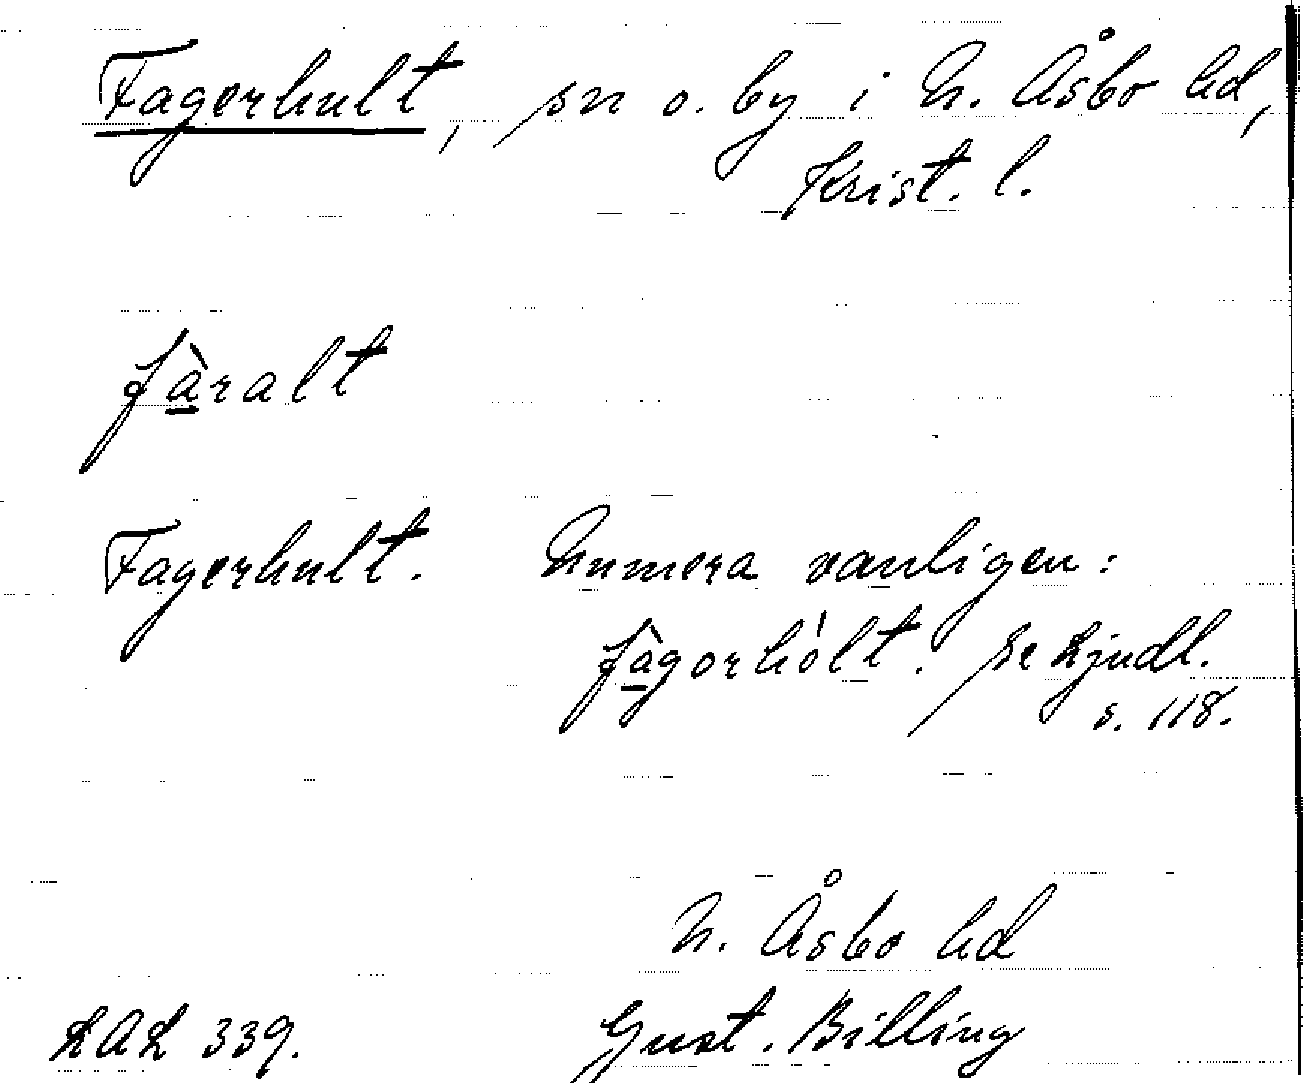 Fagerhult, sn o. by i N. Åsbo hd,
Krist. l.
fàralt
Fagerhult. Numera vanligen:
fàgorhólt. Se Ljudl.
s. 118.
N. Åsbo hd
LAL 339. Gust. Billing